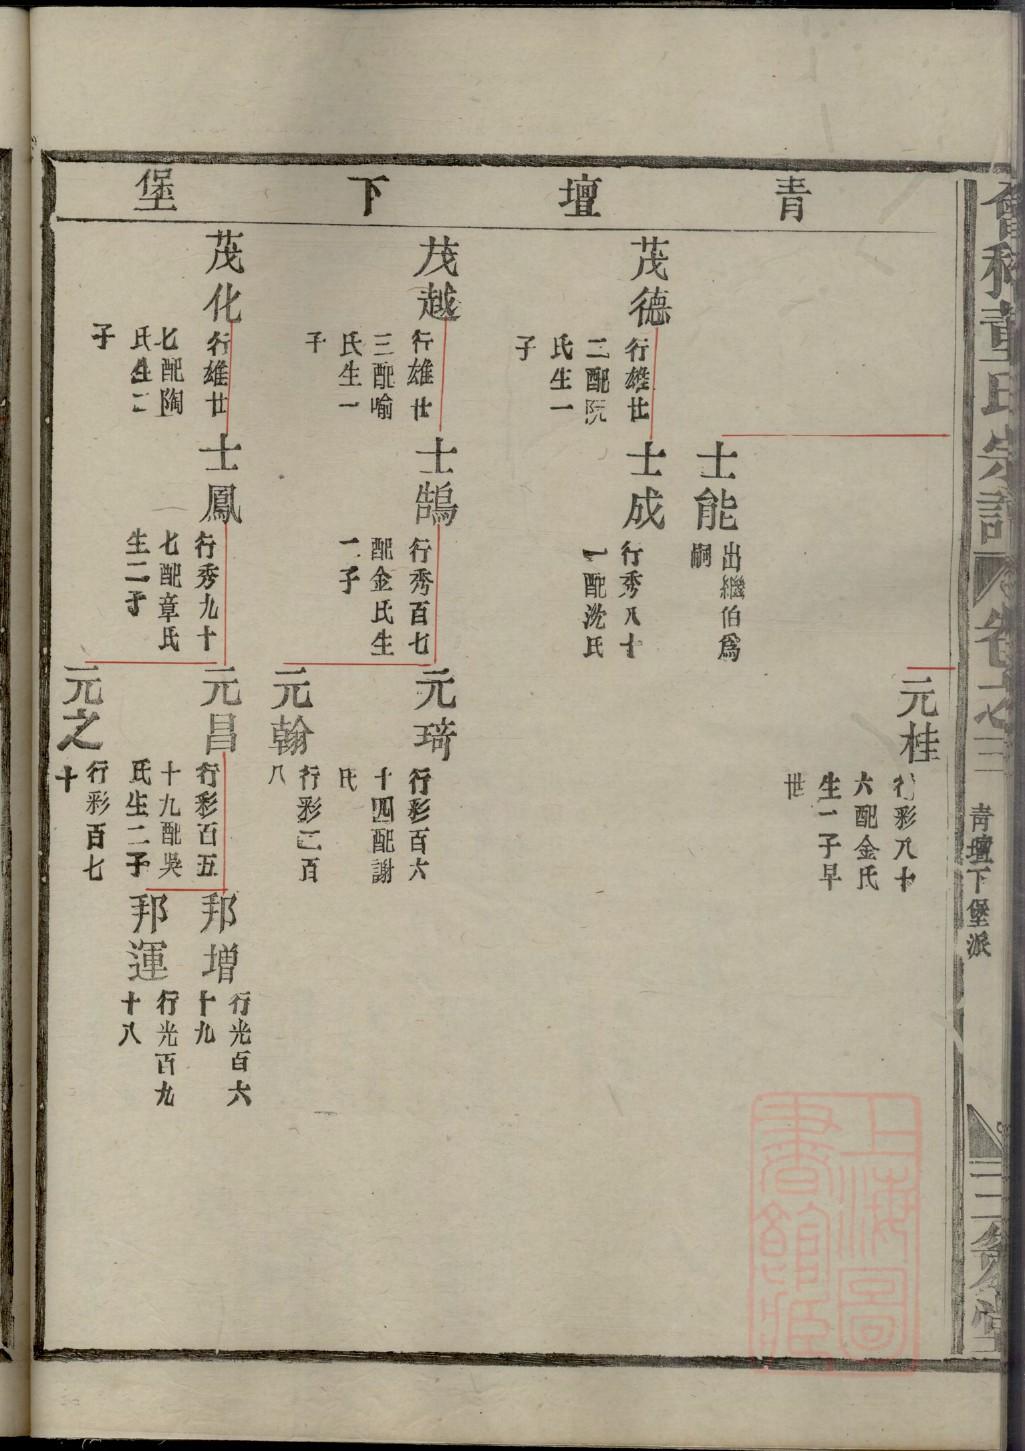 會稽童氏宗譜
卷之三
青壇下堡派
青壇下堡
元桂
行彩八十
六配金氏
生一子早
世
士能
出繼伯爲
嗣
茂德
行雄廿
二配阮
氏生一
子
士成
行秀八十
一配沈氏
茂越
行雄廿
三配喻
氏生一
子
士鵠
行秀百七
配金氏生
二子
元琦
行彩百六
十四配謝
氏
元翰
行彩二百
八
茂化
行雄廿
七配陶
氏生二
子
士鳳
行秀九十
七配章氏
生二子
元昌
行彩百五
十九配吳
氏生二子
邦增
行光百六
十九
邦運
行光百九
十八
元之
行彩百七
十
上海圖
書館藏